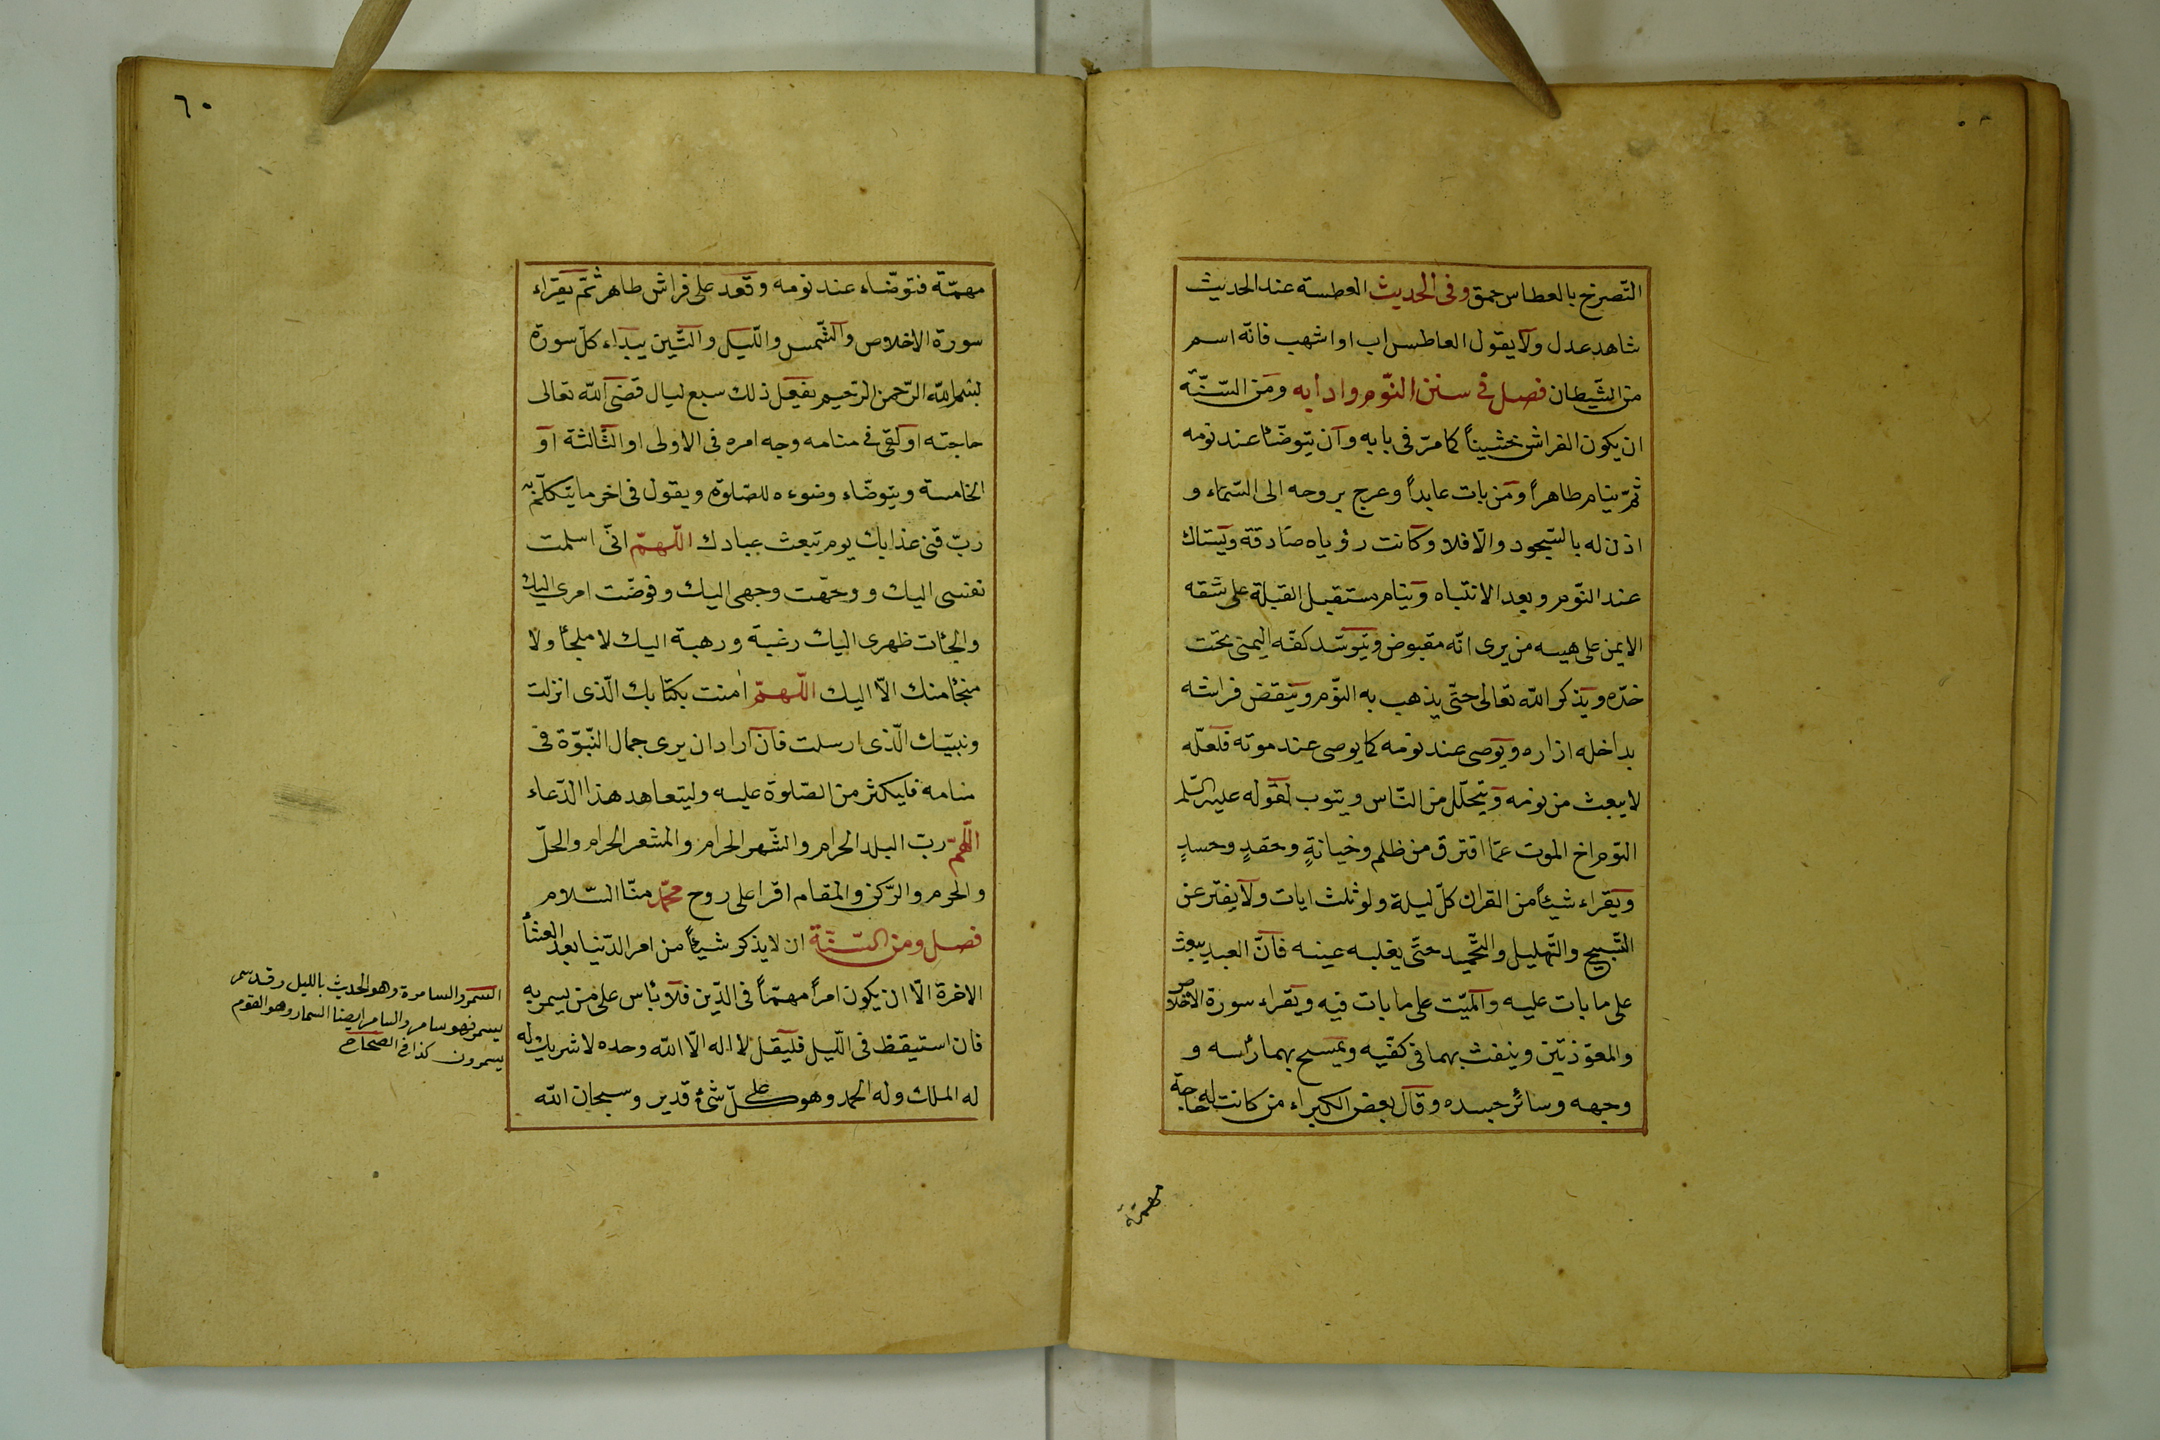 التّصريح بالعطاس حمق وفى الحديث العطسة عند الحديث
شاهد عدل ولا يقول العاطس اب او اشهب فانّه اسم
من الشّيطان فصل فى سنن النّوم وادابه ومن السّنّة
ان يكون الفراش خشيناً كما مرّ فى بابه وان يتوضّأ عند نومه
ثمّ ينام طاهراً ومن بات عابداً وعرج بروحه الى السّماء و
اذن له بالسّجود والّا فلا وكانت رؤياه صادقة ويستاك
عند النّوم وبعد الانتباه وينام مستقبل القبلة على شقه
الايمن على هيئه من يرى انّه مقبوض ويتوسّد كفّه اليمنى تحت
خدّه ويذكر الله تعالى حتّى يذهب به النّوم وينقض فراشه
بداخله ازاره ويوصى عند نومه كما يوصى عند موته فلعلّه
لا يبعث من نومه ويتحلّل من النّاس ويتوب لقوله عليه السّلم
النّوم اخ الموت عمّا اقترق من ظلم وخيانةٍ وحقدٍ وحسدٍ
ويقراء شيئاً من القران كلّ ليلة ولو ثلث ايات ولا يفتر عن
التّسبيح والتّهليل والتّحميد حتّى يغلبه عينه فانّ العبد يبعث
على ما بات عليه والميّت على ما بات فيه ويقراء سورة الاخلاص
والمعوّذتين وينفث بهما فى كفّيه ويمسح بهما رأسه و
وجهه وسائر جسده وقال بعض الكبراء من كانت له حاجة
مهمّة
٦٠
مهمّة فتوضّاء عند نومه وقعد على فراش طاهر ثمّ يقراء
سورة الاخلاص والشّمس واللّيل والتّين يبداء كلّ سورة
بسم الله الرّحمن الرّحيم يفعل ذلك سبع ليال قضى الله تعالى
حاجته او لقى فى منامه وجه امره فى الاولى او الثّالثة او
الخامسة ويتوضّاء وضوءه للصّلوة ويقول فى اخر ما يتكلّم به
ربّ قنى عذابك يوم تبعث عبادك اللّهمّ انّى اسلمت
نفسى اليك ووجّهت وجهى اليك وفوّضت امرى اليك
والجأت ظهرى اليك رغبة ورهبة اليك لا ملجأ ولا
منجأ منك الّا اليك اللّهمّ امنت بكتابك الّذى انزلت
ونبيّك الّذى ارسلت فان اراد ان يرى جمال النّبوّة فى
منامه فليكثر من الصّلوة عليه وليتعاهد هذا الدّعاء
اللّهمّ ربّ البلد الحرام والشّهر الحرام والمشعر الحرام والحلّ
والحرم والرّكن والمقام اقرا على روح محمّد منّا السّلام
فصل ومن السّنّة ان لا يذكر شيئاً من امر الدّنيا بعد العشأ
الاخرة الّا ان يكون امراً مهمّاً فى الدّين فلا بأس على من يسمر به
فان استيقظ فى اللّيل فليقل لا اله الّا الله وحده لا شريك له
له الملك وله الحمد وهو على كلّ شئ قدير وسبحان الله
السمر والسامرة وهو الحديث بالليل وقد سمر
يسمر فهو سامر والسامر ايضا السمار وهو القوم
يسمرون كذا فى الصحاح